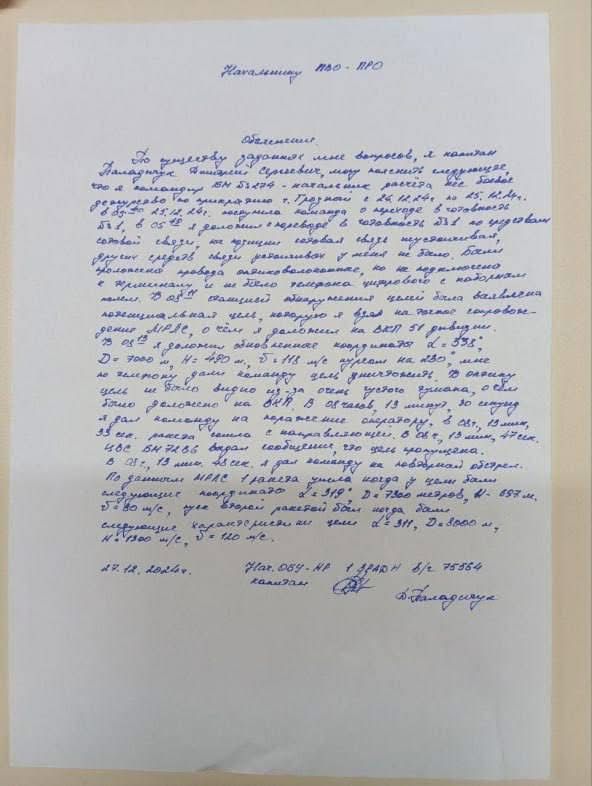 Начальнику ПВО - ПРО
Объяснение.
По существу заданных мне вопросов, я капитан
Паладичук Дмитрий Сергеевич, могу пояснить следующее,
что я командир БМ - начальник расчета нес боевое
дежурство по прикрытию г. Грозной с 24.12.24г. по 25.12.24г.
25.12.24г. поступила команда о переходе в готовность
№1, в 05 я доложил о переводе в готовность №1 по средствам
сотовой связи, на позиции сотовая связь неустойчивая,
других средств связи устойчивых у меня не было. Были
проложена провода оптиковолоконное, но не подключена
к терминалу и не было телефона цифрового с наборным
полем. В 08 станцией обнаружения целей была заявлена
потенциальная цель, которую я взял на точное сопровож-
дение МРЛС, о чём я доложил на ВКП 51 дивизии.
В 08 я доложил обновленное координаты α = 338°,
D = 7000 м, H = 490 м, V = 118 м/с курсом на мне
по телефону дали команду цель уничтожить. В оптику
цель не было видно из-за очень густого тумана, о чём
было доложено на ВКП. В 08 часов, 13 минут, 30 секунд
я дал команду на поражение оператору, в 08ч, 13 мин,
33 сек. ракета сошла с направляющей. В 08 ч, 13 мин, 47 сек.
ЦВС БМ 72В6 выдал сообщение, что цель пропущена.
В 08ч, 13 мин. 48 сек. я дал команду на повторный обстрел.
По данным МРЛС 1 ракета ушла когда у цели были
следующие координаты α = 319°, D = 7300 метров, H - 697 м.
V = 80 м/с, второй ракетой был когда были
следующие характеристики цели α = 311, D = 8000 м,
H = 1300 м/с, V = 120 м/с.
27.12.2024г. Нач. ОБУ-НР 1 ЗРАДН в/ч 75564
капитан
Д. Паладичук